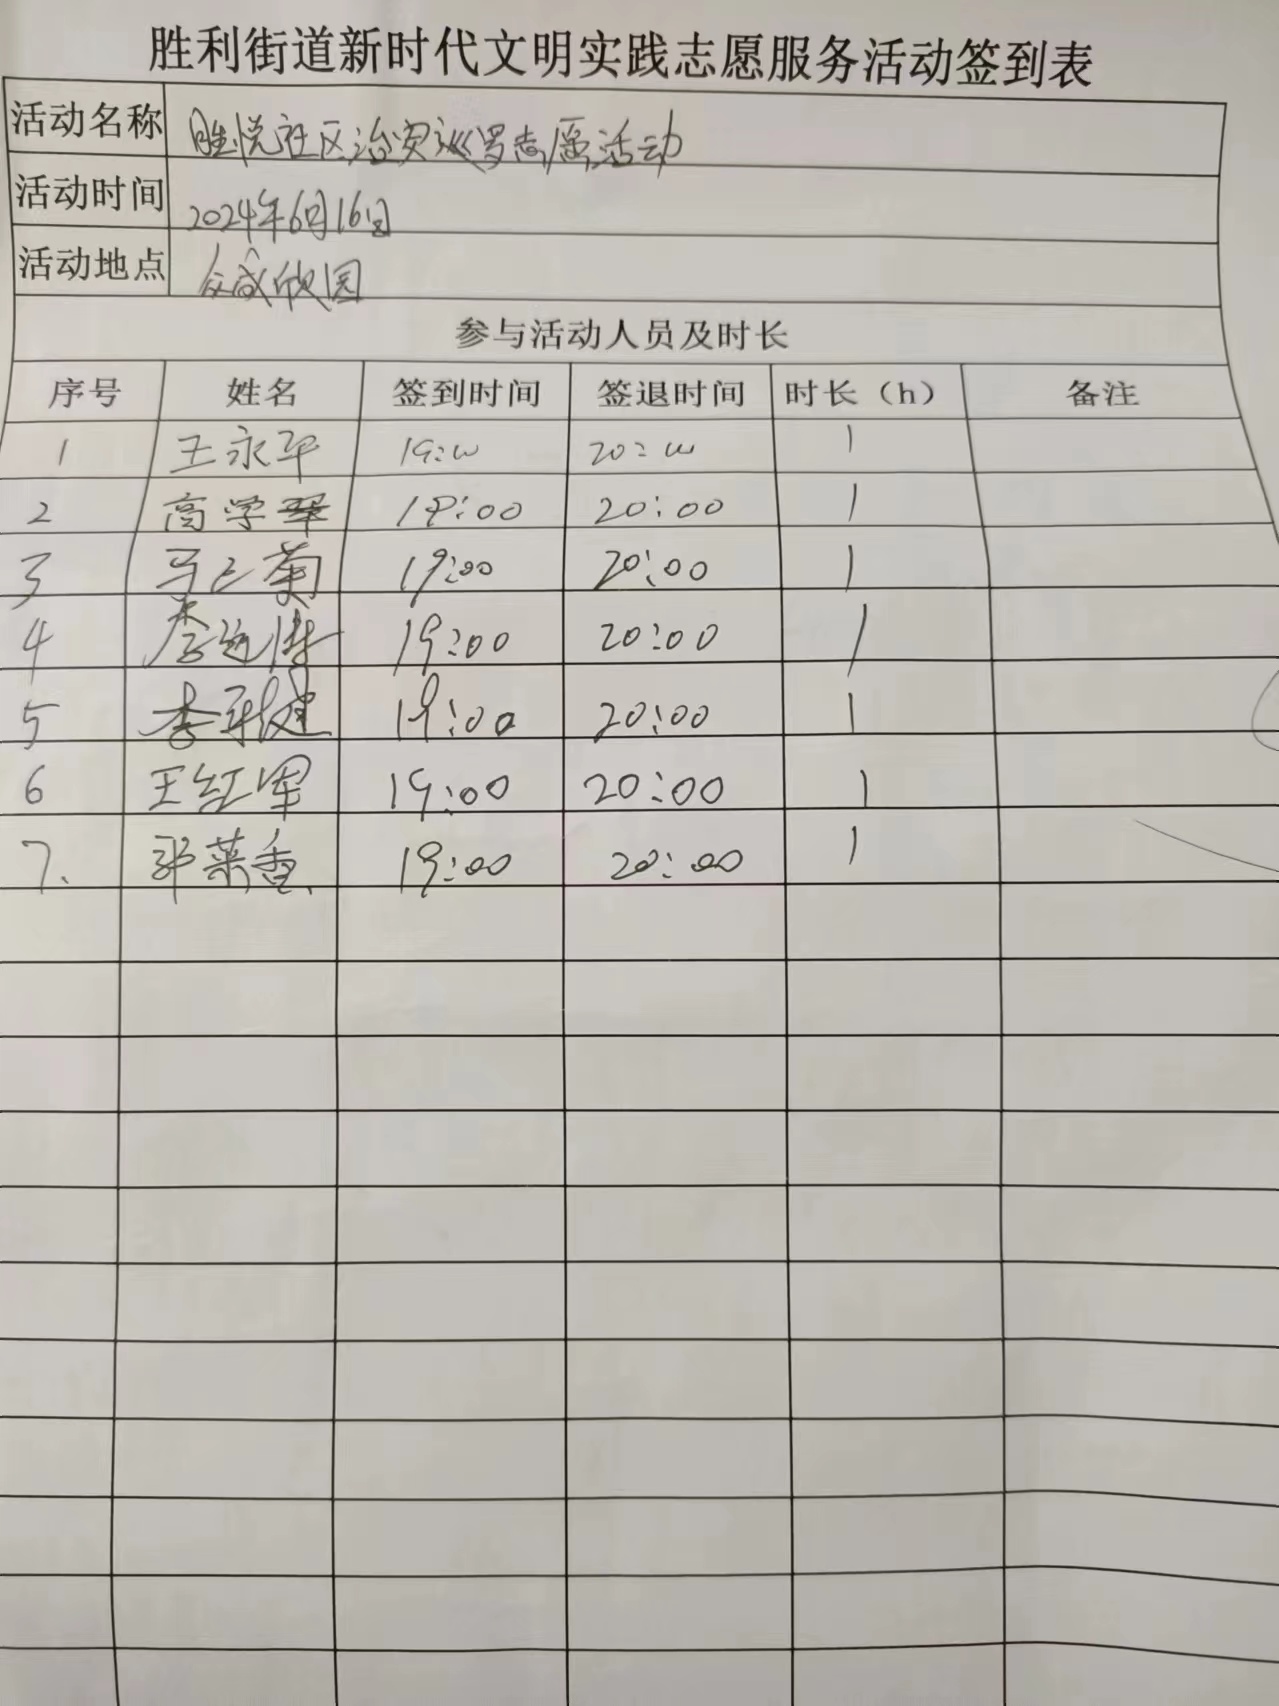 胜利街道新时代文明实践志愿服务活动签到表
活动名称 胜悦社区治安巡罗志愿活动
活动时间 2024年6月16日
活动地点 众成欣园
参与活动人员及时长
序号 姓名 签到时间 签退时间 时长（h） 备注
1 王永平 19:00 20:00 1
2 高学琴 19:00 20:00 1
3 马三菊 19:00 20:00 1
4 李 19:00 20:00 1
5 李 健 19:00 20:00 1
6 王红军 19:00 20:00 1
7. 郭菜香 19:00 20:00 1